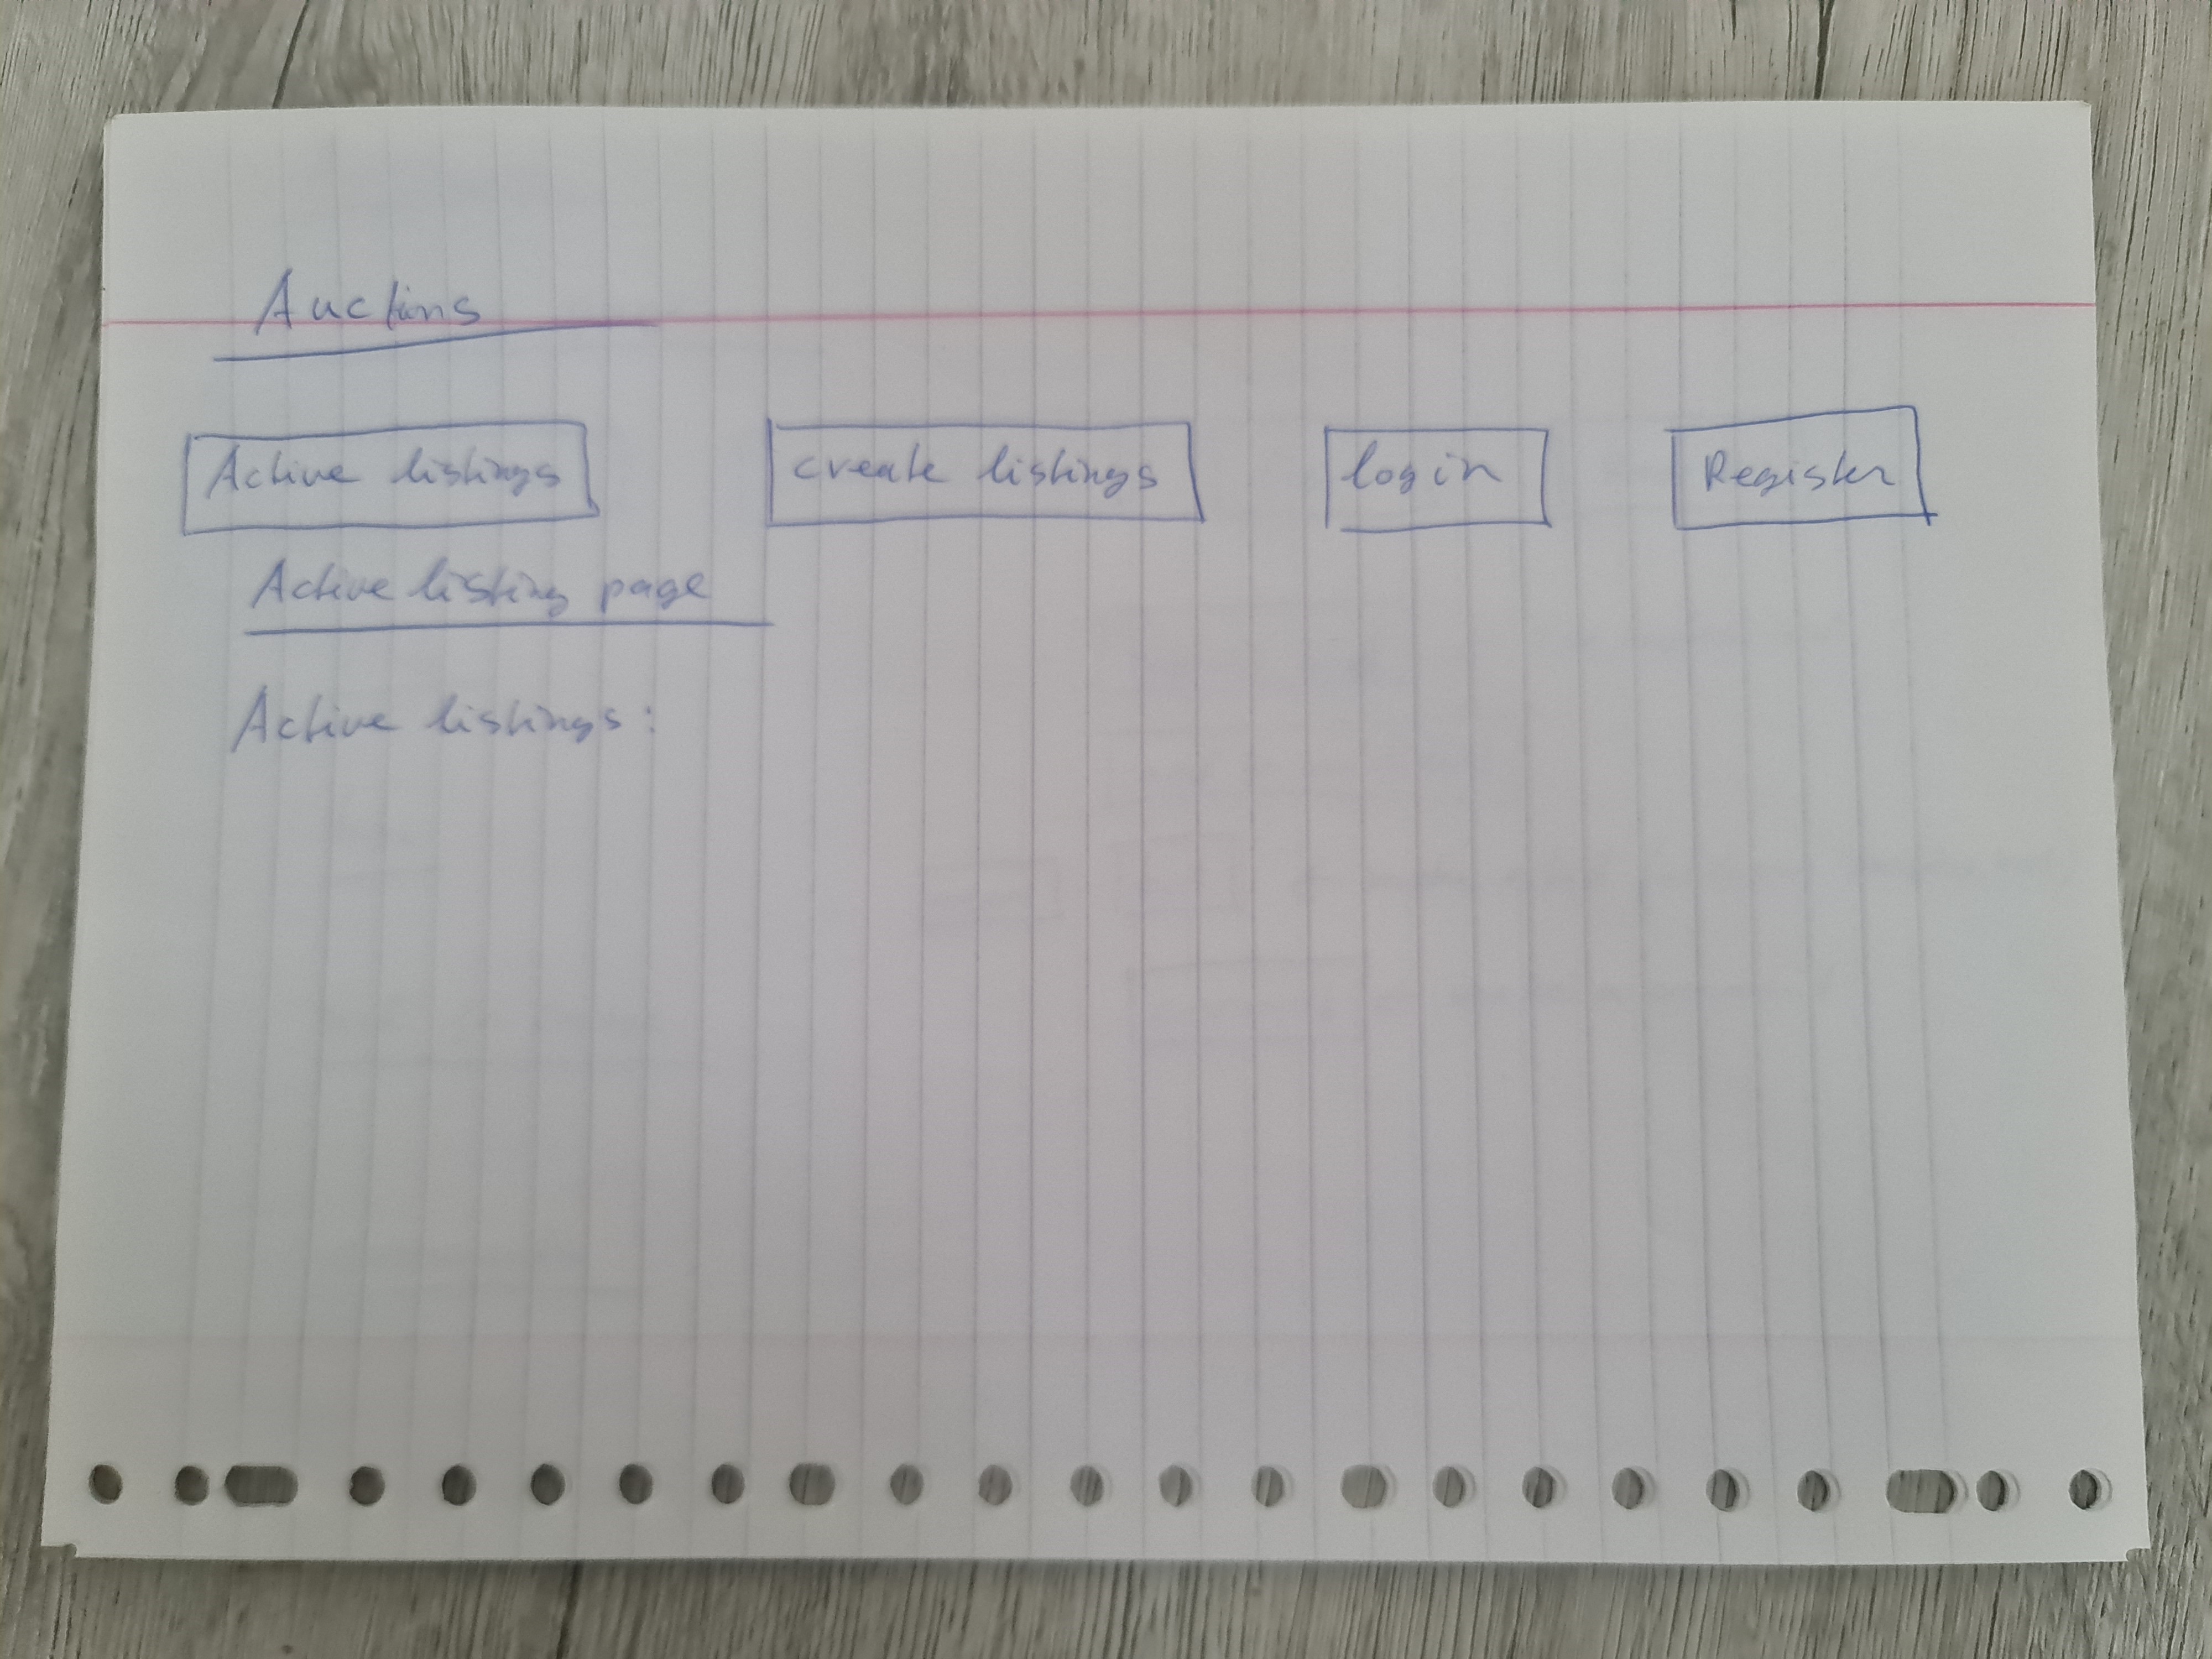 Auctions
Active listings create listings login Register
Active listing page
Active listings: